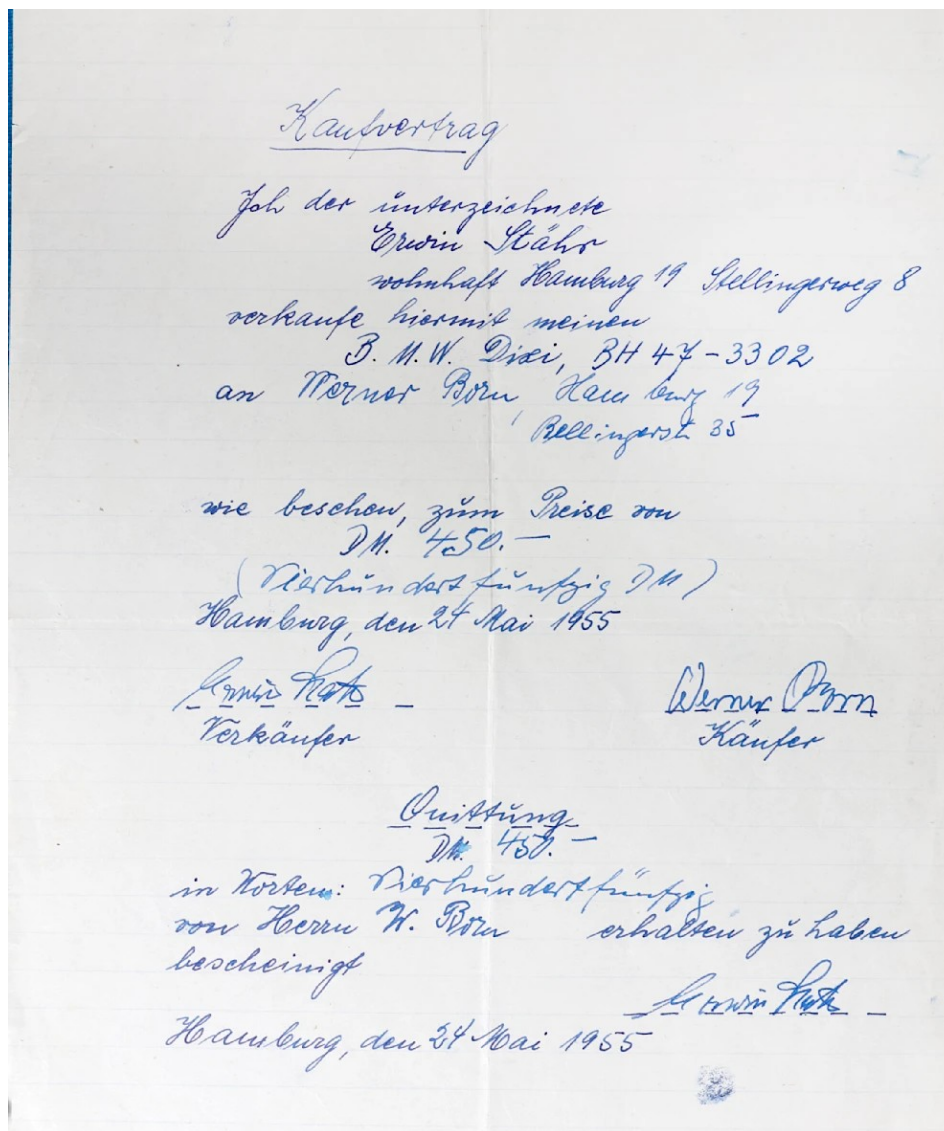 Kaufvertrag
Ich der unterzeichnete
Erwin Stähr
wohnhaft Hamburg 19 Stellingerweg 8
verkaufe hiermit meinen
B. M. W. Dixi, BH 47-3302
an Werner Born, Hamburg 19
Bellingerst. 35
wie besehen, zum Preise von
DM. 450.—
(Vierhundertfünfzig DM)
Hamburg, den 24 Mai 1955
Erwin
Werner Born
Verkäufer
Käufer
Quittung
DM. 450.—
in Worten: Vierhundertfünfzig
von Herrn W. Born erhalten zu haben
bescheinigt
Erwin
Hamburg, den 24 Mai 1955